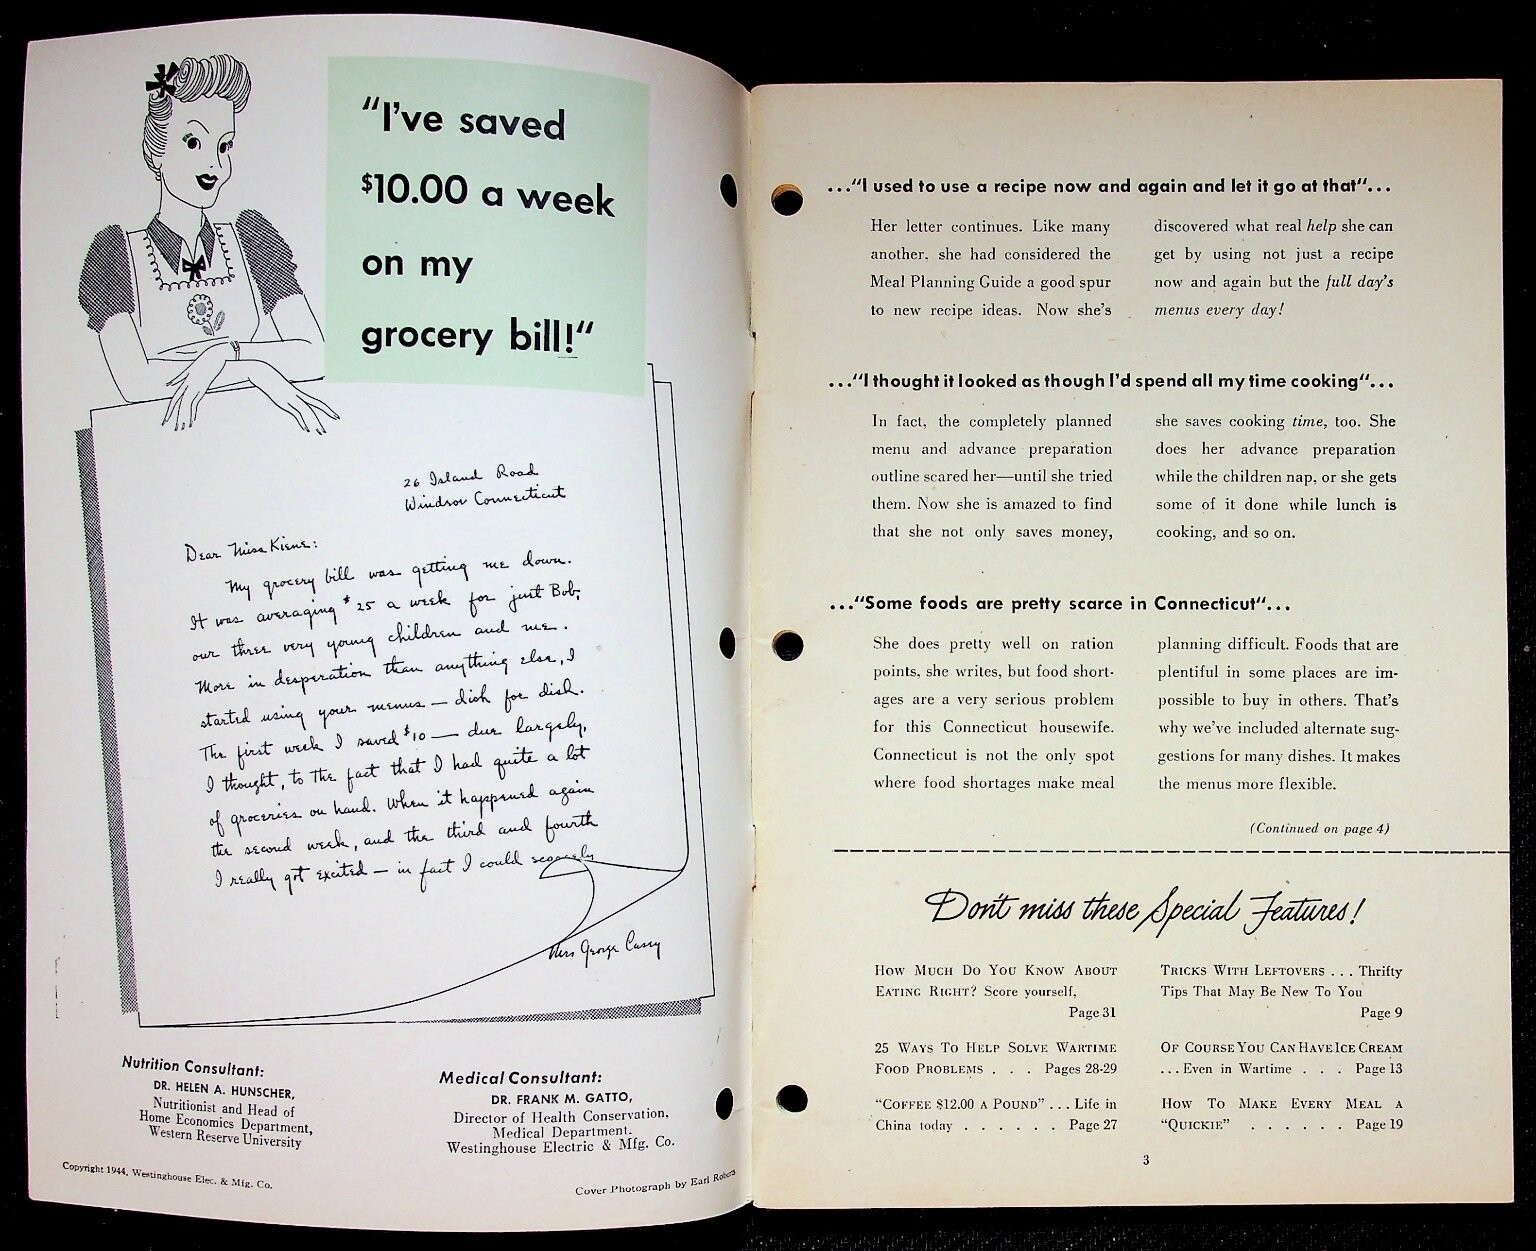 "I've saved
$10.00 a week
on my
grocery bill!"
26 Island Road
Windsor Connecticut
Dear Miss Kiene:
My grocery bill was getting me down.
It was averaging $25 a week for just Bob,
our three very young children and me.
More in desperation than anything else, I
started using your menus — dish for dish.
The first week I saved $10 — due largely,
I thought, to the fact that I had quite a lot
of groceries on hand. When it happened again
the second week, and the third and fourth
I really got excited — in fact I could scarcely
Mrs George Casey
Nutrition Consultant:
DR. HELEN A. HUNSCHER,
Nutritionist and Head of
Home Economics Department,
Western Reserve University
Medical Consultant:
DR. FRANK M. GATTO,
Director of Health Conservation,
Medical Department.
Westinghouse Electric & Mfg. Co.
Copyright 1944, Westinghouse Elec. & Mfg. Co.
Cover Photograph by Earl Roberts
..."I used to use a recipe now and again and let it go at that"...
Her letter continues. Like many
another, she had considered the
Meal Planning Guide a good spur
to new recipe ideas. Now she's
discovered what real help she can
get by using not just a recipe
now and again but the full day's
menus every day!
..."I thought it looked as though I'd spend all my time cooking"...
In fact, the completely planned
menu and advance preparation
outline scared her—until she tried
them. Now she is amazed to find
that she not only saves money,
she saves cooking time, too. She
does her advance preparation
while the children nap, or she gets
some of it done while lunch is
cooking, and so on.
..."Some foods are pretty scarce in Connecticut"...
She does pretty well on ration
points, she writes, but food short-
ages are a very serious problem
for this Connecticut housewife.
Connecticut is not the only spot
where food shortages make meal
planning difficult. Foods that are
plentiful in some places are im-
possible to buy in others. That's
why we've included alternate sug-
gestions for many dishes. It makes
the menus more flexible.
(Continued on page 4)
Don't miss these Special Features!
HOW MUCH DO YOU KNOW ABOUT
EATING RIGHT? Score yourself,
Page 31
25 WAYS TO HELP SOLVE WARTIME
FOOD PROBLEMS . . . Pages 28-29
"COFFEE $12.00 A POUND" ... Life in
China today . . . . . . Page 27
TRICKS WITH LEFTOVERS ... Thrifty
Tips That May Be New To You
Page 9
OF COURSE YOU CAN HAVE ICE CREAM
... Even in Wartime . . . Page 13
HOW TO MAKE EVERY MEAL A
"QUICKIE" . . . . . . Page 19
3